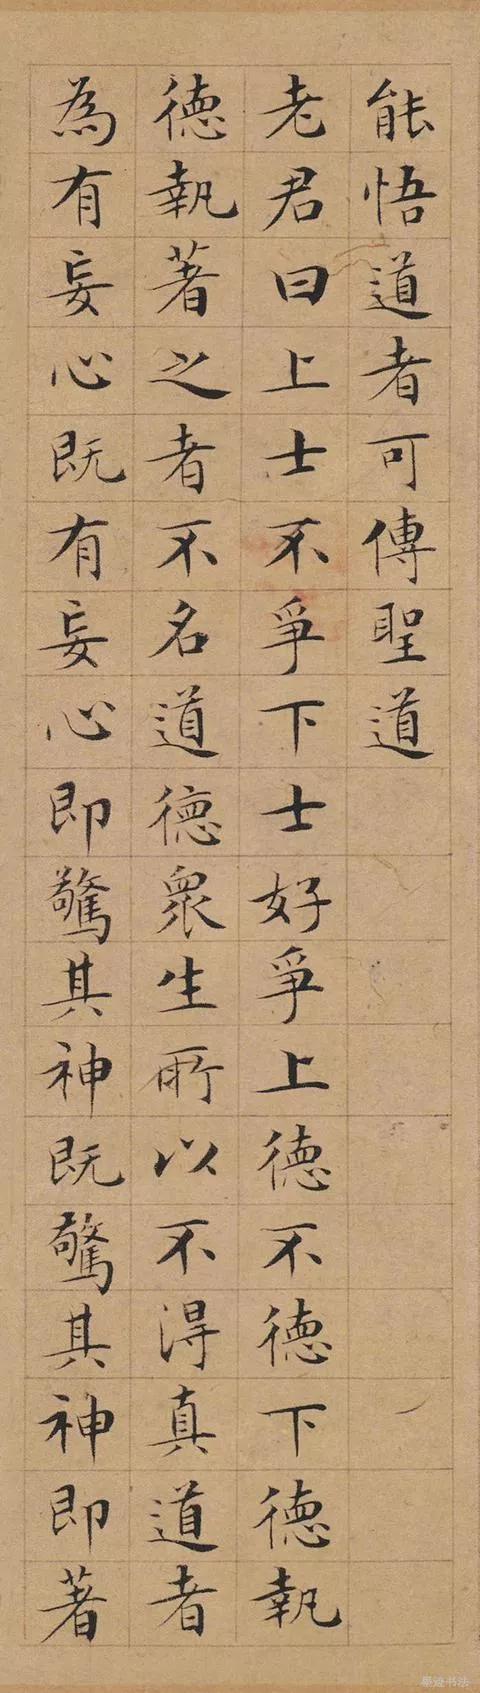 能悟道者可傳聖道
老君曰上士不爭下士好爭上德不德下德執
德執著之者不名道德眾生所以不得真道者
為有妄心既有妄心即驚其神既驚其神即著
墨迹书法